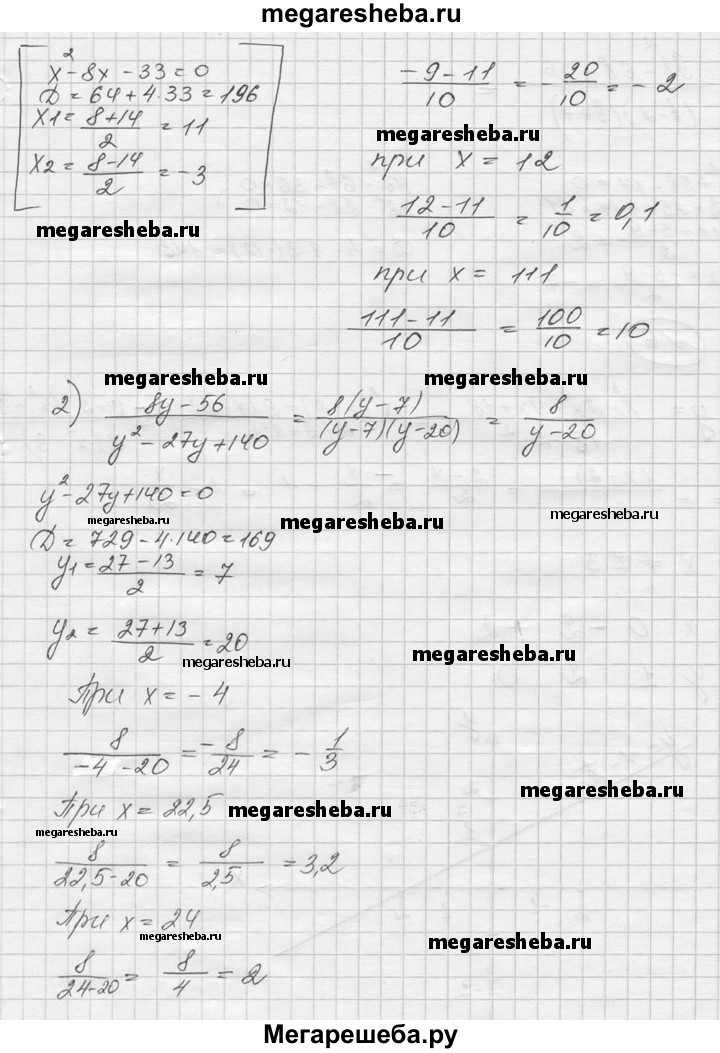 megaresheba.ru
x² - 8x - 33 = 0
D = 64 + 4·33 = 196
x1 = (8+14)/2 = 11
x2 = (8-14)/2 = -3
megaresheba.ru
(-9-11)/10 = -20/10 = -2
megaresheba.ru
при x = 12
(12-11)/10 = 1/10 = 0,1
при x = 111
(111-11)/10 = 100/10 = 10
megaresheba.ru megaresheba.ru
2) (8y-56)/(y²-27y+140) = 8(y-7)/((y-7)(y-20)) = 8/(y-20)
y² - 27y + 140 = 0
megaresheba.ru megaresheba.ru megaresheba.ru
D = 729 - 4·140 = 169
y1 = (27-13)/2 = 7
y2 = (27+13)/2 = 20
megaresheba.ru megaresheba.ru
При x = -4
8/(-4-20) = -8/24 = -1/3
megaresheba.ru
При x = 22,5 megaresheba.ru
megaresheba.ru
8/(22,5-20) = 8/2,5 = 3,2
При x = 24
megaresheba.ru megaresheba.ru
8/(24-20) = 8/4 = 2
Мегарешеба.ру